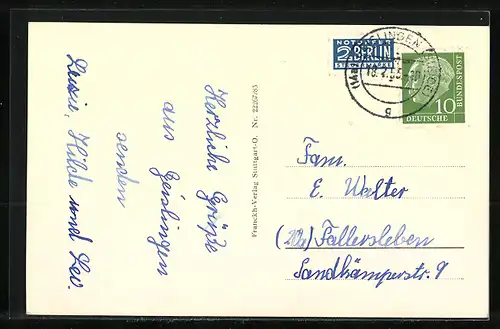 Herzliche Grüße
aus Geislingen
senden
Luzia, Hilde und Leo.
Franckh-Verlag Stuttgart-O. Nr.
NOTOPFER
2 BERLIN
STEUERMARKE
SLINGEN
10
DEUTSCHE
BUNDESPOST
Fam.
E. Walter
(20a) Fallersleben
Sandkämperstr. 9